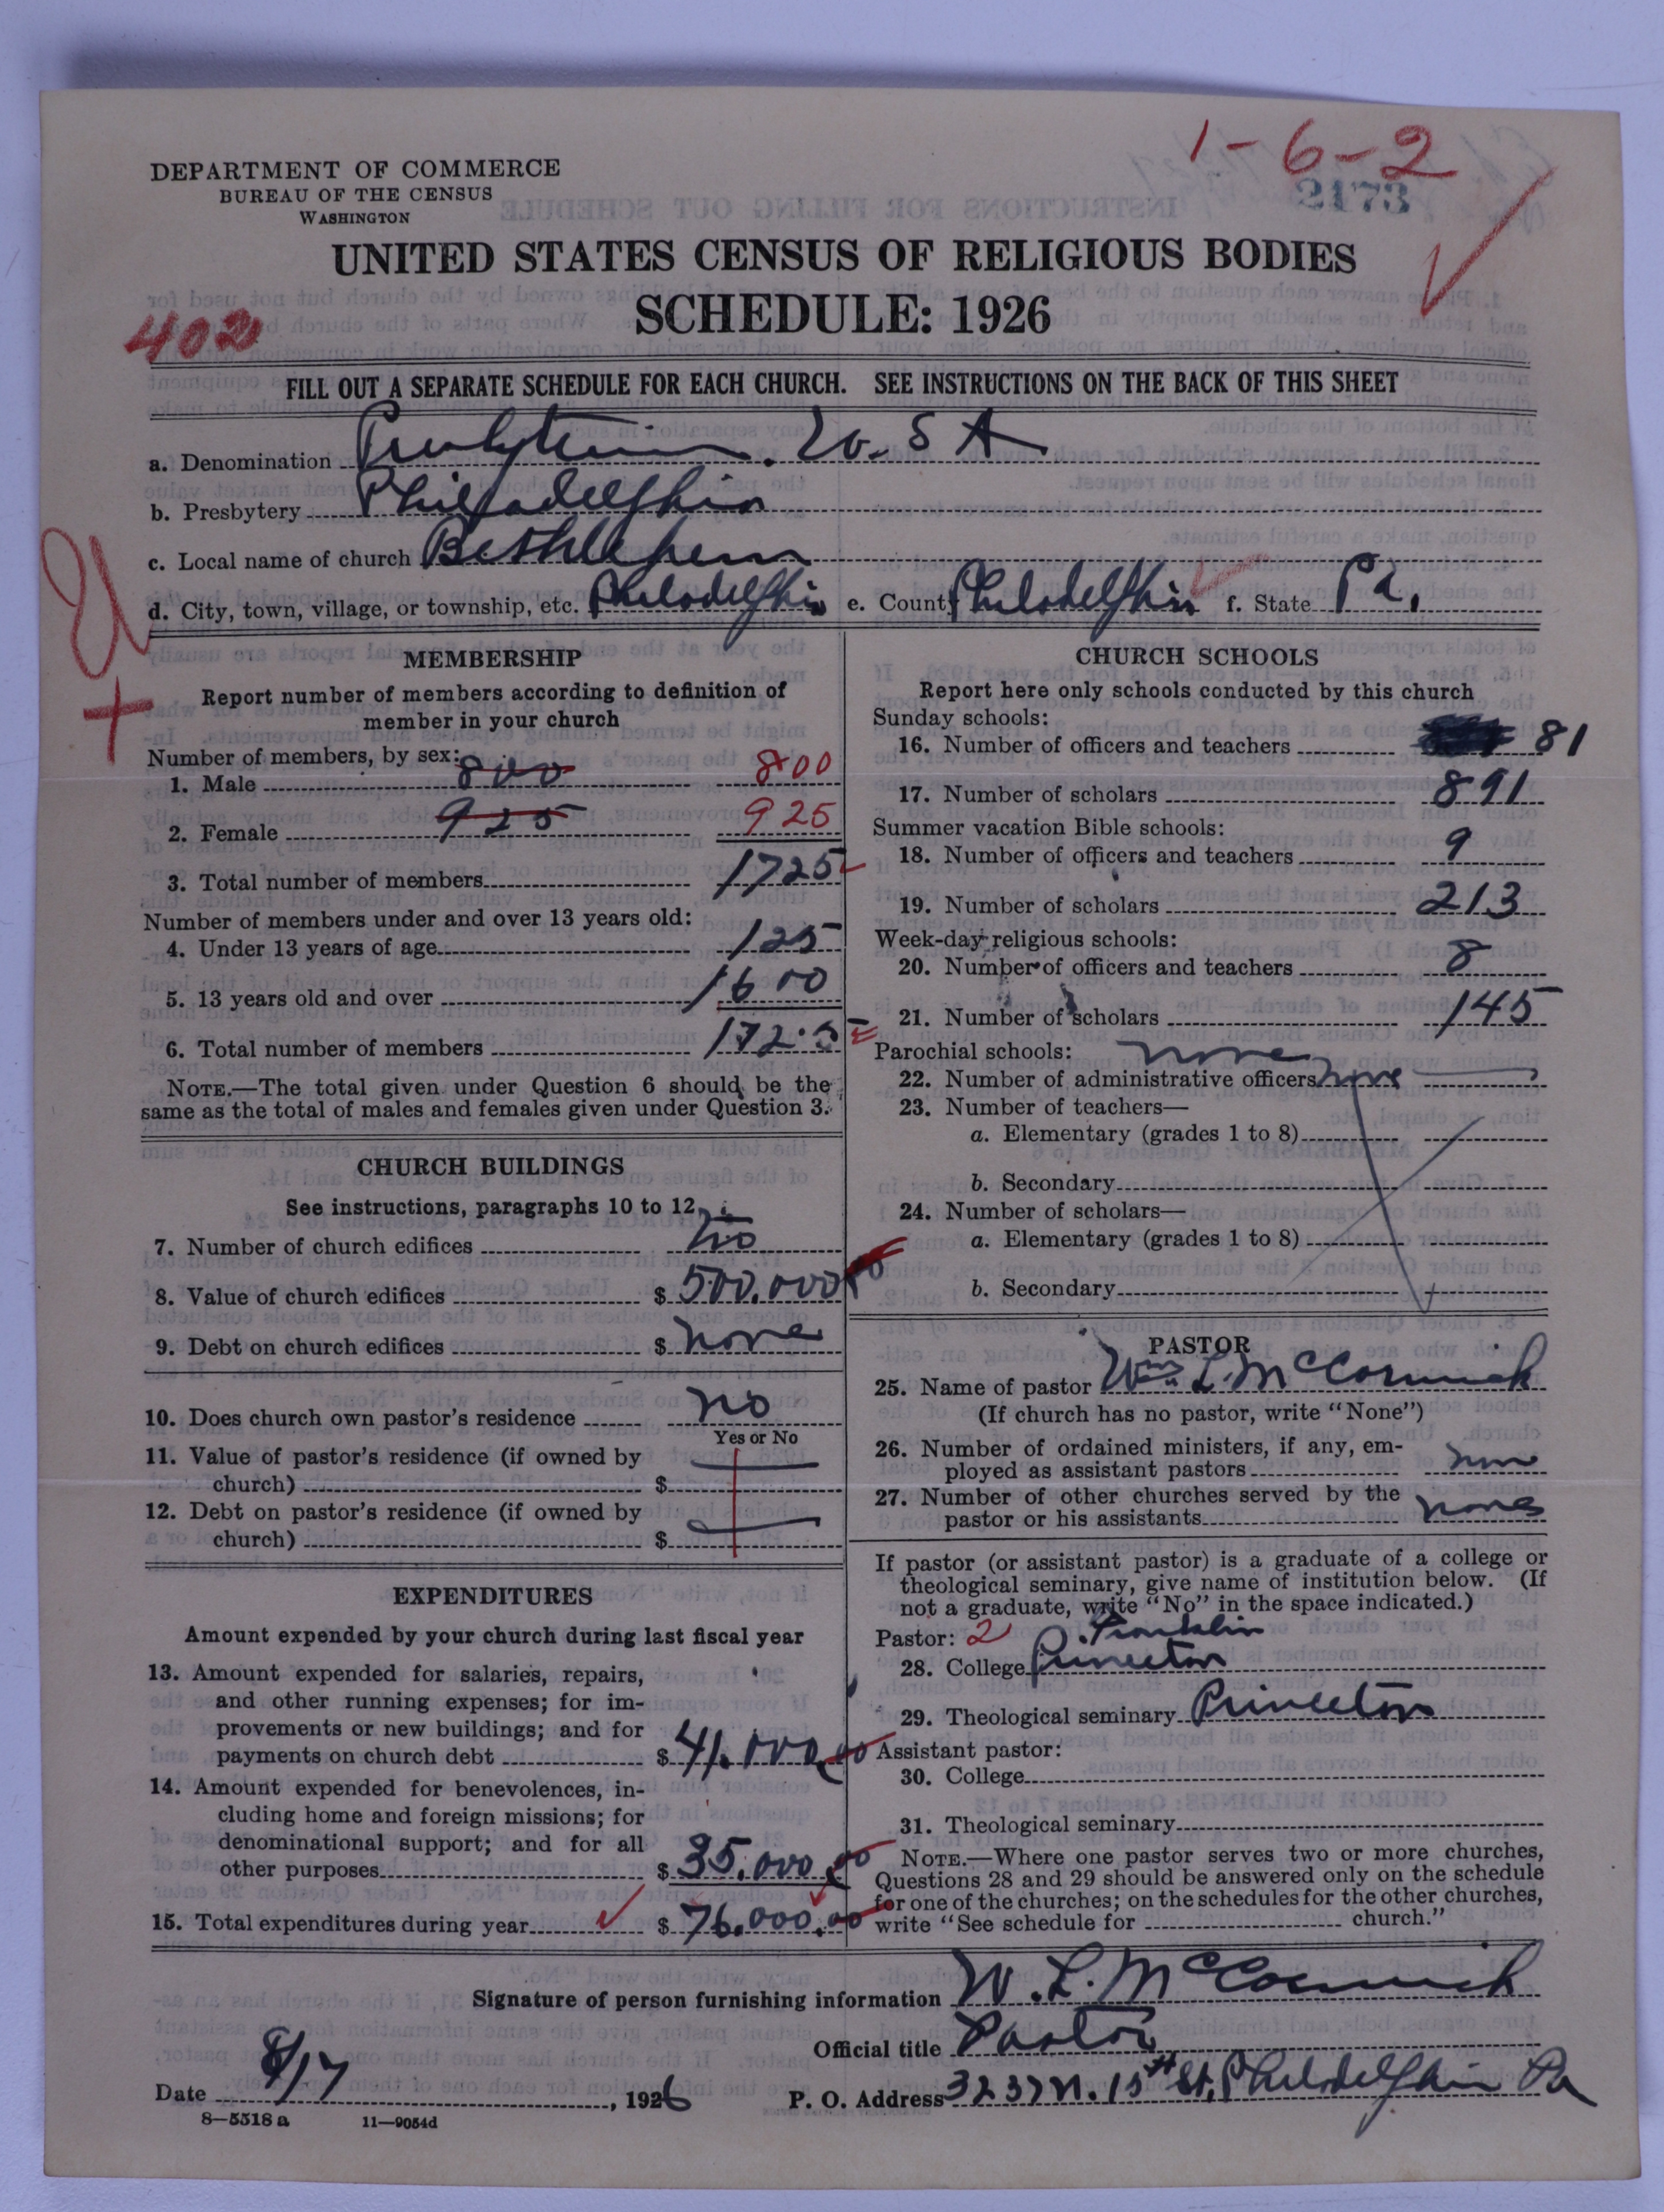 1-6-2
2173
DEPARTMENT OF COMMERCE
BUREAU OF THE CENSUS
WASHINGTON
UNITED STATES CENSUS OF RELIGIOUS BODIES
SCHEDULE: 1926
402
FILL OUT A SEPARATE SCHEDULE FOR EACH CHURCH. SEE INSTRUCTIONS ON THE BACK OF THIS SHEET
a. Denomination Presbyterian. U.S A
b. Presbytery Philadelphia
c. Local name of church Bethlehem
d. City, town, village, or township, etc. Philadelphia e. County Philadelphia f. State Pa.
MEMBERSHIP
Report number of members according to definition of
member in your church
Number of members, by sex:
1. Male 800 800
2. Female 925 925
3. Total number of members 1725
Number of members under and over 13 years old:
4. Under 13 years of age 125
5. 13 years old and over 1600
6. Total number of members 1725
NOTE.—The total given under Question 6 should be the
same as the total of males and females given under Question 3.
CHURCH BUILDINGS
See instructions, paragraphs 10 to 12
7. Number of church edifices
8. Value of church edifices $ 500.000 00
9. Debt on church edifices $ none
10. Does church own pastor's residence no
Yes or No
11. Value of pastor's residence (if owned by
church) $
12. Debt on pastor's residence (if owned by
church) $
EXPENDITURES
Amount expended by your church during last fiscal year
13. Amount expended for salaries, repairs,
and other running expenses; for im-
provements or new buildings; and for
payments on church debt $ 41.000.00
14. Amount expended for benevolences, in-
cluding home and foreign missions; for
denominational support; and for all
other purposes $ 35.000.00
15. Total expenditures during year $ 76.000.00
CHURCH SCHOOLS
Report here only schools conducted by this church
Sunday schools:
16. Number of officers and teachers 81
17. Number of scholars 891
Summer vacation Bible schools:
18. Number of officers and teachers 9
19. Number of scholars 213
Week-day religious schools:
20. Number of officers and teachers 8
21. Number of scholars 145
Parochial schools: none
22. Number of administrative officers none
23. Number of teachers—
a. Elementary (grades 1 to 8)
b. Secondary
24. Number of scholars—
a. Elementary (grades 1 to 8)
b. Secondary
PASTOR
25. Name of pastor Wm L. McCormick
(If church has no pastor, write "None")
26. Number of ordained ministers, if any, em-
ployed as assistant pastors none
27. Number of other churches served by the
pastor or his assistants none
If pastor (or assistant pastor) is a graduate of a college or
theological seminary, give name of institution below. (If
not a graduate, write "No" in the space indicated.)
Pastor: 2 Franklin
28. College Princeton
29. Theological seminary Princeton
Assistant pastor:
30. College
31. Theological seminary
NOTE.—Where one pastor serves two or more churches,
Questions 28 and 29 should be answered only on the schedule
for one of the churches; on the schedules for the other churches,
write "See schedule for church."
Signature of person furnishing information W. L. McCormick
Official title Pastor
Date 8/17, 1926 P. O. Address 3237 N. 15th St, Philadelphia Pa
8—5518a 11—9054d